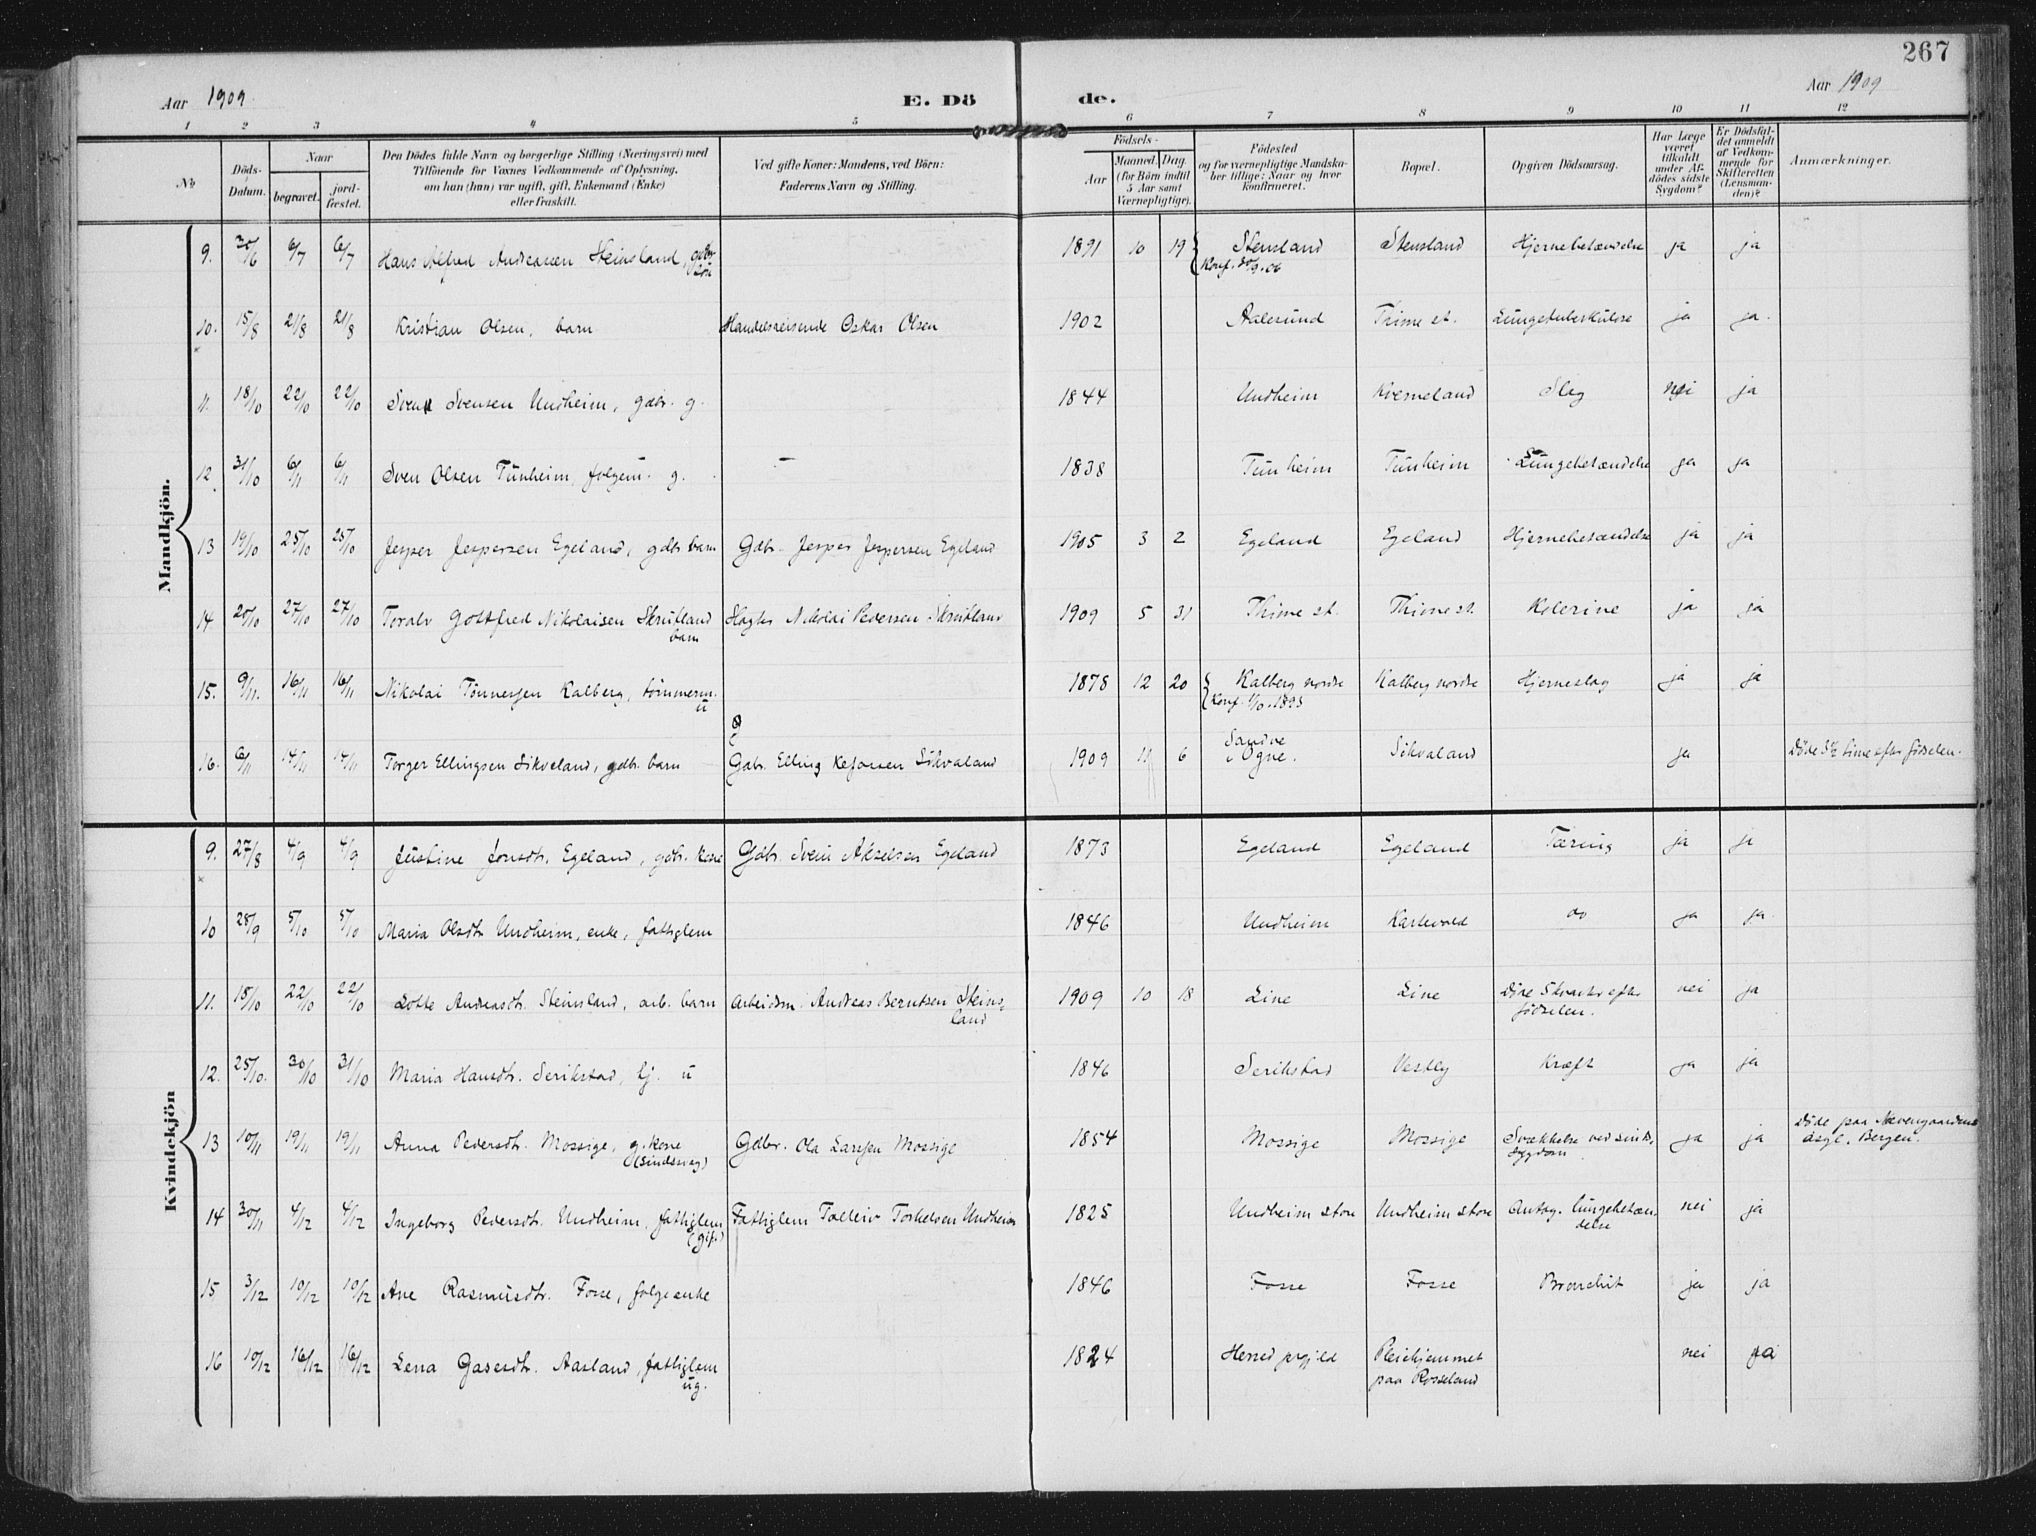 267
Aar 1909
E. Dö
de.
Aar 1909
1 2 3 4 5 6 7 8 9 10 11 12
No
Döds-
Datum.
Naar
begravet.
jord-
fæstet.
Den Dödes fulde Navn og borgerlige Stilling (Næringsvei) med
Tilföiende for Voxnes Vedkommende af Oplysning,
om han (hun) var ugift, gift, Enkemand (Enke)
eller fraskilt.
Ved gifte Koner: Mandens, ved Börn:
Faderens Navn og Stilling.
Födsels-
Aar
Maaned. Dag.
(for Börn indtil
5 Aar samt
Værnepligtige).
Födested
og for værnepligtige Mandska-
ber tillige: Naar og hvor
konfirmeret.
Bopæl.
Opgiven Dödsaarsag.
Har Læge
været
tilkaldt
under Af-
dödes sidste
Sygdom?
Er Dödsfal-
det anmeldt
af Vedkom-
mende for
Skifteretten
(Lensman-
den)?
Anmærkninger.
Mandkjön.
9. 30/6 6/7 6/7 Hans Alfred Andreassen Steinsland, gdbr. sön 1891 10 19 Stensland Stensland Hjernebetændelse ja ja
Konf. 30/9.06
10. 15/8 21/8 21/8 Kristian Olsen, barn Handelsreisende Oskar Olsen 1902 Aalesund Thime st. Lungetuberkulose ja ja
11. 18/10 22/10 22/10 Sven Svensen Undheim, gdbr. g. 1844 Undheim Kverneland Slag nei ja
12. 31/10 6/11 6/11 Sven Olsen Tunheim, folgem. g. — 1838 Tunheim Tunheim Lungebetændelse ja ja
13 19/10 25/10 25/10 Jesper Jespersen Egeland, gdbr barn Gdbr. Jesper Jespersen Egeland 1905 3 2 Egeland Egeland Hjernebetændelse ja ja
14. 20/10 27/10 27/10 Toralv Gottfred Nikolaisen Skrutland Nikolai Pedersen Skrutland 1909 5 31 Thime st. Thime st. Kolerine ja ja
barn
15. 9/11. 16/11 16/11 Nikolai Tönnessen Kalberg, tömmerm. 1878 12 20 Kalberg nordre Kalberg nordre Hjerneslag ja ja
u Konf. 1/10.1893
16. 6/11 14/11 14/11 Torger Ellingsen Sikveland, gdb. barn Gdb. Elling Sikvaland 1909 11 6 Sandve Ogne. Sikvaland ja Döde 5½ time efter födselen.
Kvindekjön
9. 27/8 4/9 4/9 Justine Jonsdtr. Egeland, gdbr. kone Gdbr. Svein Akselsen Egeland 1873 Egeland Egeland Tæring ja ja
10 28/9 5/10 5/10 Maria Olsdtr Undheim, enke, fattiglem 1846 Undheim Kartevold do ja ja
11. 15/10 22/10 22/10 Lotte Andreasdtr. Steinsland, arb. barn Arbeidsm. Andreas Berntsen Steins- 1909 10 18 Line Line Döde 5 kvarter efter nei ja
land födselen.
12. 25/10. 30/10 31/10 Maria Hansdtr. Serikstad, tj. u 1846 Serikstad Vestly Kræft ja ja
13 10/11 19/11 19/11 Anna Pedersdtr. Mossige, g. kone Gdbr. Ola Larssen Mossige 1854 Mossige Mossige Svækkelse ved sinds- ja ja Döde paa Neevengaardens
(sindssvag) sygdom asyl, Bergen.
14 30/11 4/12 4/12 Ingeborg Pedersdtr. Undheim, fattiglem Fattiglem Tolleiv Torkelsen Undheim 1825 Undheim store Undheim store Antag. lungebetæn- nei ja
(gift) delse
15 3/12 10/12 10/12 Ane Rasmusdtr. Fosse, folgeenke 1846 Fosse Fosse Bronchit ja ja
16 10/12 16/12 16/12 Lena Gasesdtr. Aasland, fattiglem 1824 Herred prgjeld Pleiehjemmet nei ja
ug. paa Rosseland